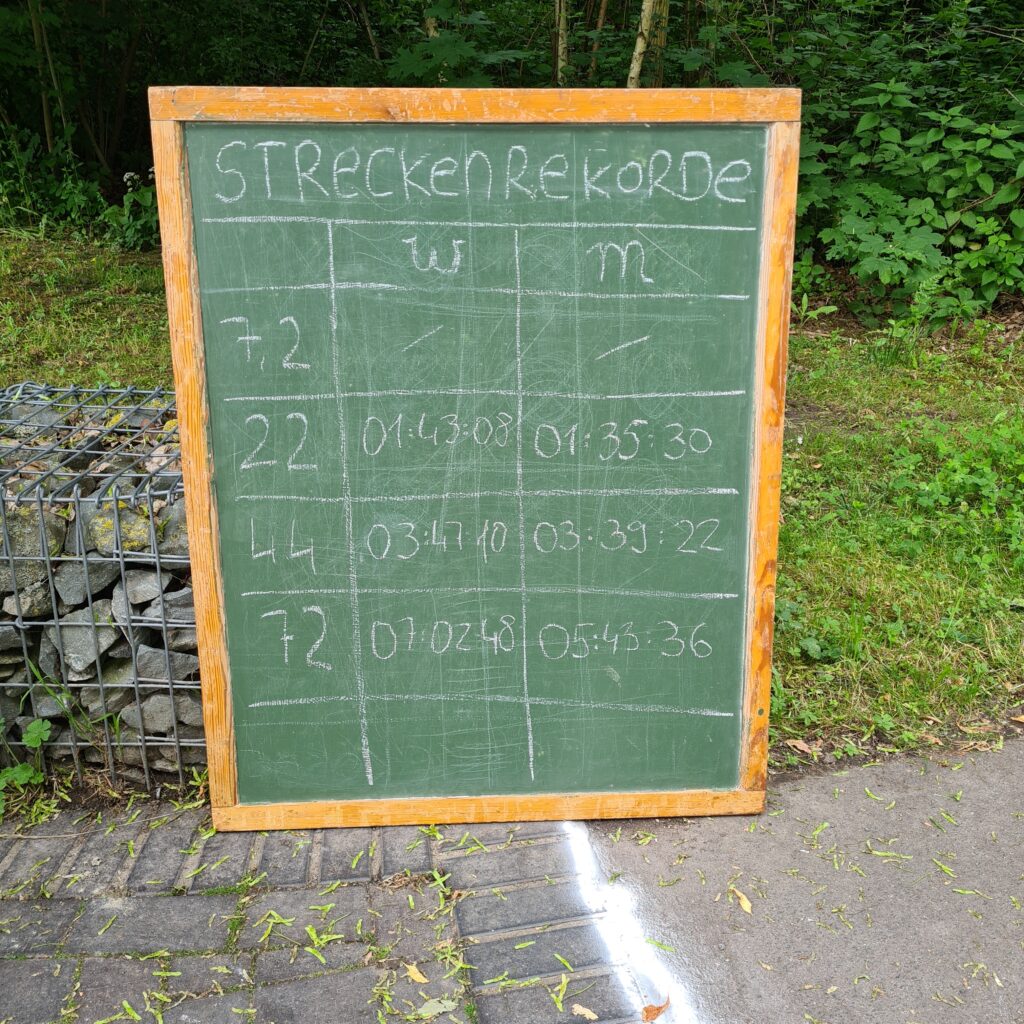 STReCKenReKoRDe
w m
7,2 – –
22 01:43:08 01:35:30
44 03:47:10 03:39:22
72 07:02:48 05:43:36